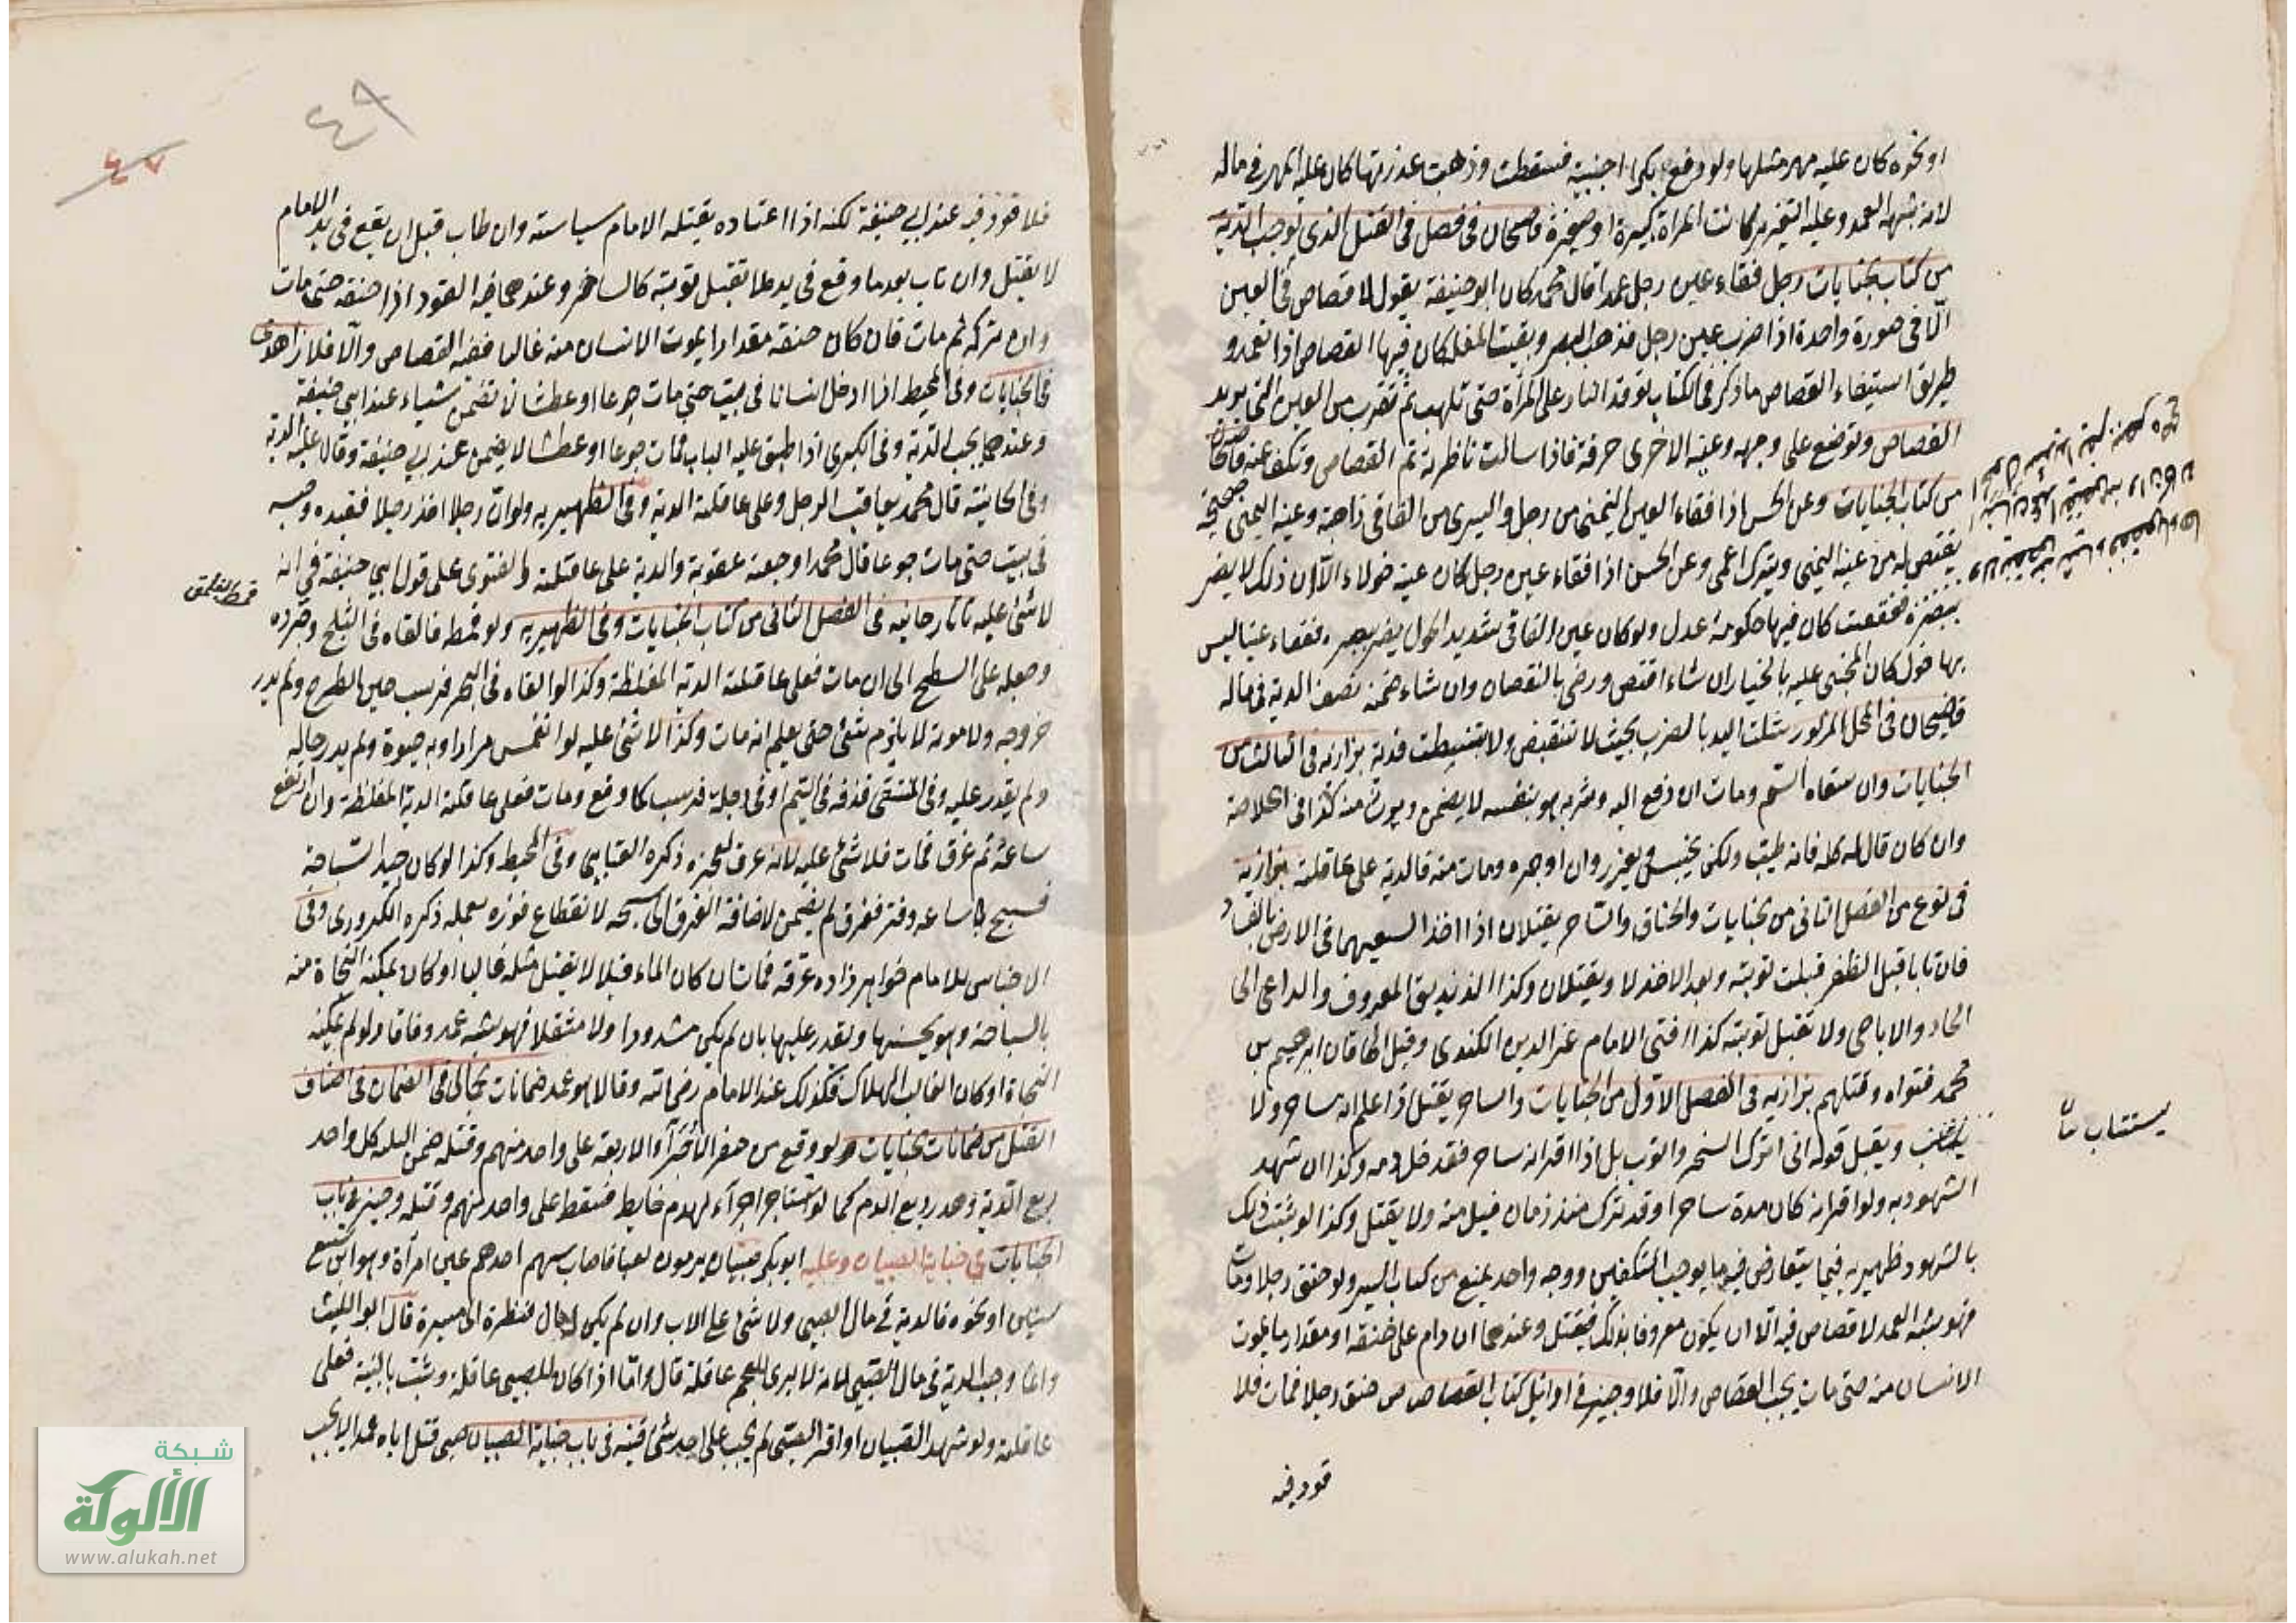 او نحوه كان عليه مهر مثلها ولو دفع بكرا اجنبية فسقطت وذهبت عذرتها كان عليه المهر في ماله
لانه شبه العمد وعليه التعزير كانت المراة كبيرة او صغيرة قاضيخان في فصل في القتل الذي يوجب الدية
من كتاب الجنايات رجل فقاء عين رجل عمدا قال محمد كان ابو حنيفة يقول لا قصاص في العين
الا في صورة واحدة اذا ضرب عين رجل فذهب البصر وبقيت المقلة كان فيها القصاص اذا تعمد و
طريق استيفاء القصاص ما ذكر في الكتاب توقد النار على المرآة حتى تلهب ثم تقرب من العين التي يريد
القصاص وتوضع على وجهه وعينه الاخرى خرقة فاذا سالت ناظرته تم القصاص وتكف عنه قاضيخان
من كتاب الجنايات وعن الحسن اذا فقاء العين اليمنى من رجل واليسرى من الفاقي ذاهبة وعينه اليمنى صحيحة
يقتص له من عينه اليمنى ويترك اعمى وعن الحسن اذا فقاء عين رجل كان عينه حولاء الا ان ذلك لا يضر
ببصره ففقعت كان فيها حكومة عدل ولو كان عين الفاقي شديد الحول يضر ببصره ففقاء عينا ليس
بها حول كان المجني عليه بالخيار ان شاء اقتص ورضي بالنقصان وان شاء ضمن نصف الدية في ماله
قاضيخان في المحل المزبور شلت اليد بالضرب بحيث لا تنقبض ولا تنبسط فدية بزازيه في الثالث من
الجنايات وان سقاه السم ومات ان دفع اليه وشربه هو بنفسه لا يضمن ويرث منه كذا في الخلاصة
وان كان قال له كله فانه طيب ولكن يحبس ويعزر وان اوجره ومات منه فالدية على عاقلته بزازية
في نوع من الفصل الثاني من الجنايات والخناق والساحر يقتلان اذا اخذا لسعيهما في الارض بالفساد
فان تابا قبل الظفر قبلت توبته وبعد الاخذ لا ويقتلان وكذا الزنديق المعروف والداعي الى
الحاد والاباحي ولا تقبل توبته كذا افتى الامام عز الدين الكندى وقبل الخاقان ابرهيم بن
محمد فتواه وقتلهم بزازيه في الفصل الاول من الجنايات والساحر يقتل اذا علم انه ساحر ولا
يستتاب ويقبل قوله اني اترك السحر واتوب بل اذا اقر انه ساحر فقد حل دمه وكذا ان شهد
الشهود به ولو اقر انه كان مدة ساحرا وقد ترك منذ زمان قبل منه ولا يقتل وكذا لو ثبت ذلك
بالشهود ظهيريه فيما يتعارض فيه ما يوجب التكفير ووجه واحد يمنع من كتاب السير ولو خنق رجلا ومات
فهو شبه العمد لا قصاص فيه الا ان يكون معروفا بذلك فيقتل وعندهما ان دام على خنقه او مقدار ما يموت
الانسان منه حتى مات يجب القصاص والا فلا وجيز في اوائل كتاب القصاص من خنق رجلا فمات فلا
قود فيه
يستتاب
٤٩
٤٧
فلا قود فيه عند ابي حنيفة لكنه اذا اعتاده يقتله الامام سياسته وان طاب قبل ان يقع في يد الامام
لا يقتل وان تاب بعد ما وقع في يده لا تقبل توبته كالساحر وعندهما فيه القود اذا خنقه حتى مات
وان تركه ثم مات فان كان خنقه مقدارا يموت الانسان منه غالبا ففيه القصاص والا فلا زاهدى
في الجنايات وفي المحيط اذا ادخل انسانا في بيت حتى مات جوعا او عطشا لا تضمن شياء عند ابي حنيفة
وعندهما يجب الدية وفي الكبرى اذا اطبق عليه الباب فمات جوعا او عطشا لا يضمن عند ابي حنيفة وقالا عليه الدية
وفي الخانية قال محمد يعاقب الرجل وعلى عاقلته الدية وفي الظهيريه ولو ان رجلا اخذ رجلا فقيده وحبسه
في بيت حتى مات جوعا قال محمد اوجعته عقوبة والدية على عاقلته والفتوى على قول ابي حنيفة في انه
لا شئ عليه تاتارخانيه في الفصل الثاني من كتاب الجنايات وفي الظهيريه ولو قمط فالقاه في الثلج وجرده
وجعله على السطح الى ان مات فعلى عاقلته الدية المغلظة وكذا لو القاه في البحر فرسب حين الطرح ولم يدر
خروجه ولا موته لا يلزم شئ حتى يعلم انه مات وكذا لا شئ عليه لو انغمس مرارا وبه حيوة ولم يدر حاله
ولم يقدر عليه وفي المنتقى قذفه في اليم او في دجلة فرسب كما وقع ومات فعلى عاقلته الدية المغلظة وان ارتفع
ساعة ثم غرق فمات فلا شئ عليه لانه غرق لعجزه ذكره العتابي وفي المحيط وكذا لو كان جيد السباحة
فسبح ساعة وفتر فغرق لم يضمن لاضافة الغرق الى سبحه لانقطاع فوره بعمله ذكره الكردرى وفي
الاجناس للامام خواهر زاده غرقه فمات ان كان الماء قليلا لا يقتل مثله غالبا او كان يمكنه النجاة منه
بالسباحة وهو يحسنها ويقدر عليها بان لم يكن مشدودا ولا مثقلا فهو شبه عمد وفاقا ولو لم يمكنه
النجاة او كان الغالب الهلاك فكذلك عند الامام رضى الله وقالا هو عمد ضمانات فضالي في الضمان في اصناف
القتل من ضمانات الجنايات ولو وقع من حفر الاجراء الاربعة على واحد منهم وقتله ضمن الثلثة كل واحد
ربع الدية وهدر ربع الدم كما لو استاجر اجراء لهدم حايط فسقط على واحد منهم وقتله وجيز في باب
الجنايات في جناية الصبيان وعليه ابو بكر صبيان يرمون لعبا فاصاب سهم احدهم عين امرأة وهو ابن تسع
سنين او نحوه فالدية في مال الصبي ولا شئ على الاب وان لم يكن له مال فنظرة الى ميسرة قال ابو الليث
وانما وجب الدية في مال الصبي لانه لا يرى للعجم عاقلة قال واما اذا كان للصبي عاقلة وثبت بالبينة فعلى
عاقلته ولو شهد الصبيان او اقر الصبي لم يجب على احد شئ قنيه في باب جناية الصبيان صبي قتل اباه عمدا لا يجب